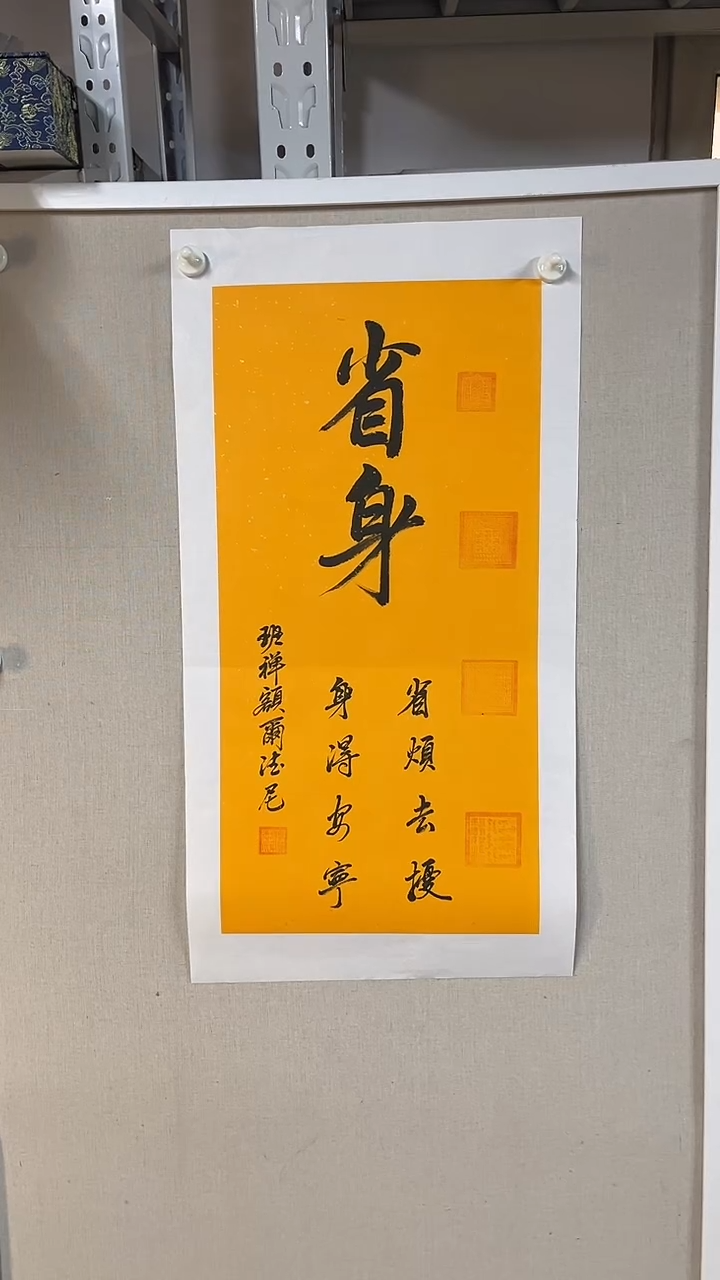 省身
省煩去擾
身得安寧
班禅額爾法尼